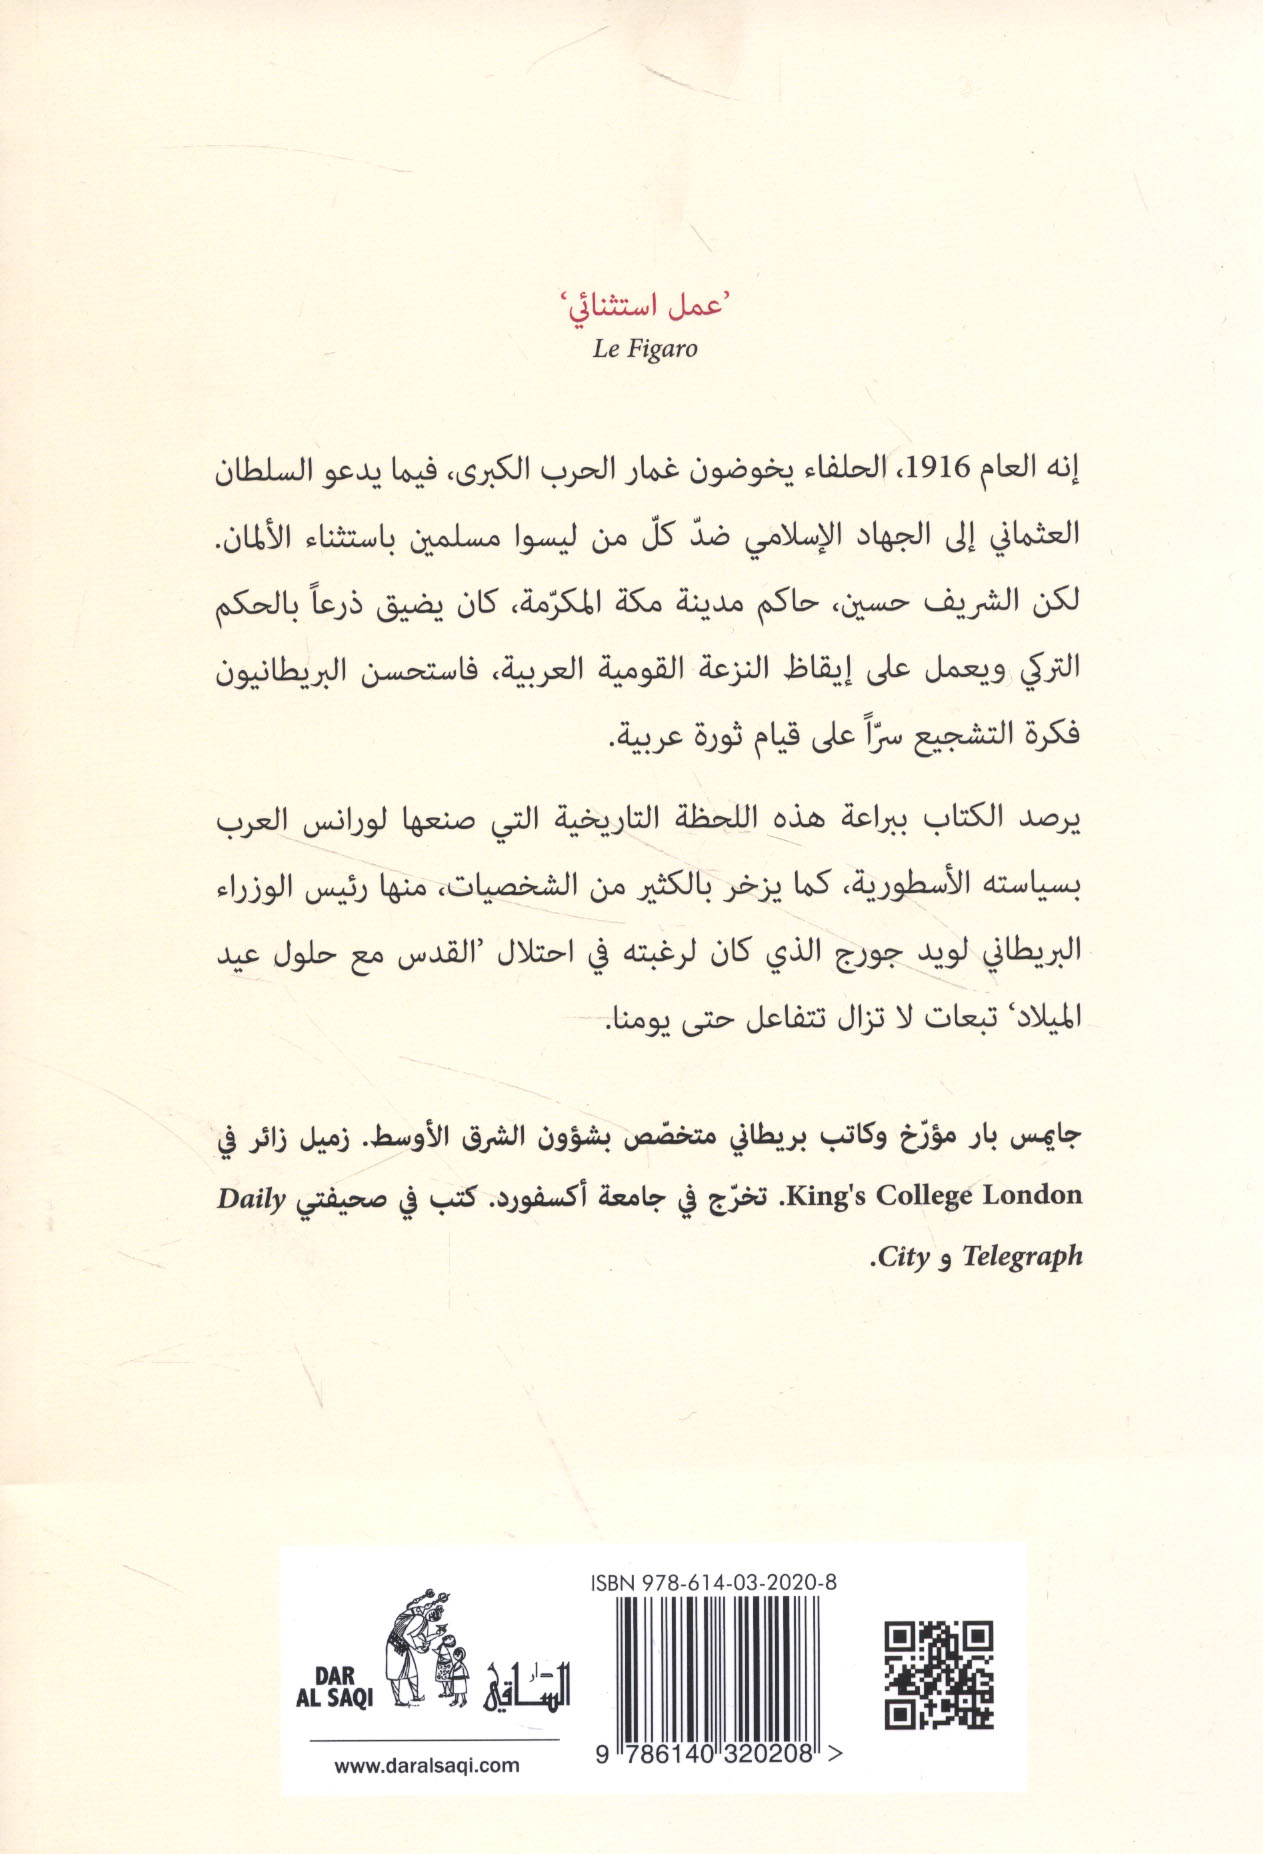 ’عمل استثنائي‘
Le Figaro
إنه العام 1916، الحلفاء يخوضون غمار الحرب الكبرى، فيما يدعو السلطان
العثماني إلى الجهاد الإسلامي ضدّ كلّ من ليسوا مسلمين باستثناء الألمان.
لكن الشريف حسين، حاكم مدينة مكة المكرّمة، كان يضيق ذرعاً بالحكم
التركي ويعمل على إيقاظ النزعة القومية العربية، فاستحسن البريطانيون
فكرة التشجيع سرّاً على قيام ثورة عربية.
يرصد الكتاب ببراعة هذه اللحظة التاريخية التي صنعها لورانس العرب
بسياسته الأسطورية، كما يزخر بالكثير من الشخصيات، منها رئيس الوزراء
البريطاني لويد جورج الذي كان لرغبته في احتلال ’القدس مع حلول عيد
الميلاد‘ تبعات لا تزال تتفاعل حتى يومنا.
جايمس بار مؤرّخ وكاتب بريطاني متخصّص بشؤون الشرق الأوسط. زميل زائر في
King's College London. تخرّج في جامعة أكسفورد. كتب في صحيفتي Daily
Telegraph و City.
ISBN 978-614-03-2020-8
DAR
AL SAQI
دار
الساقي
www.daralsaqi.com
9 786140 320208 >